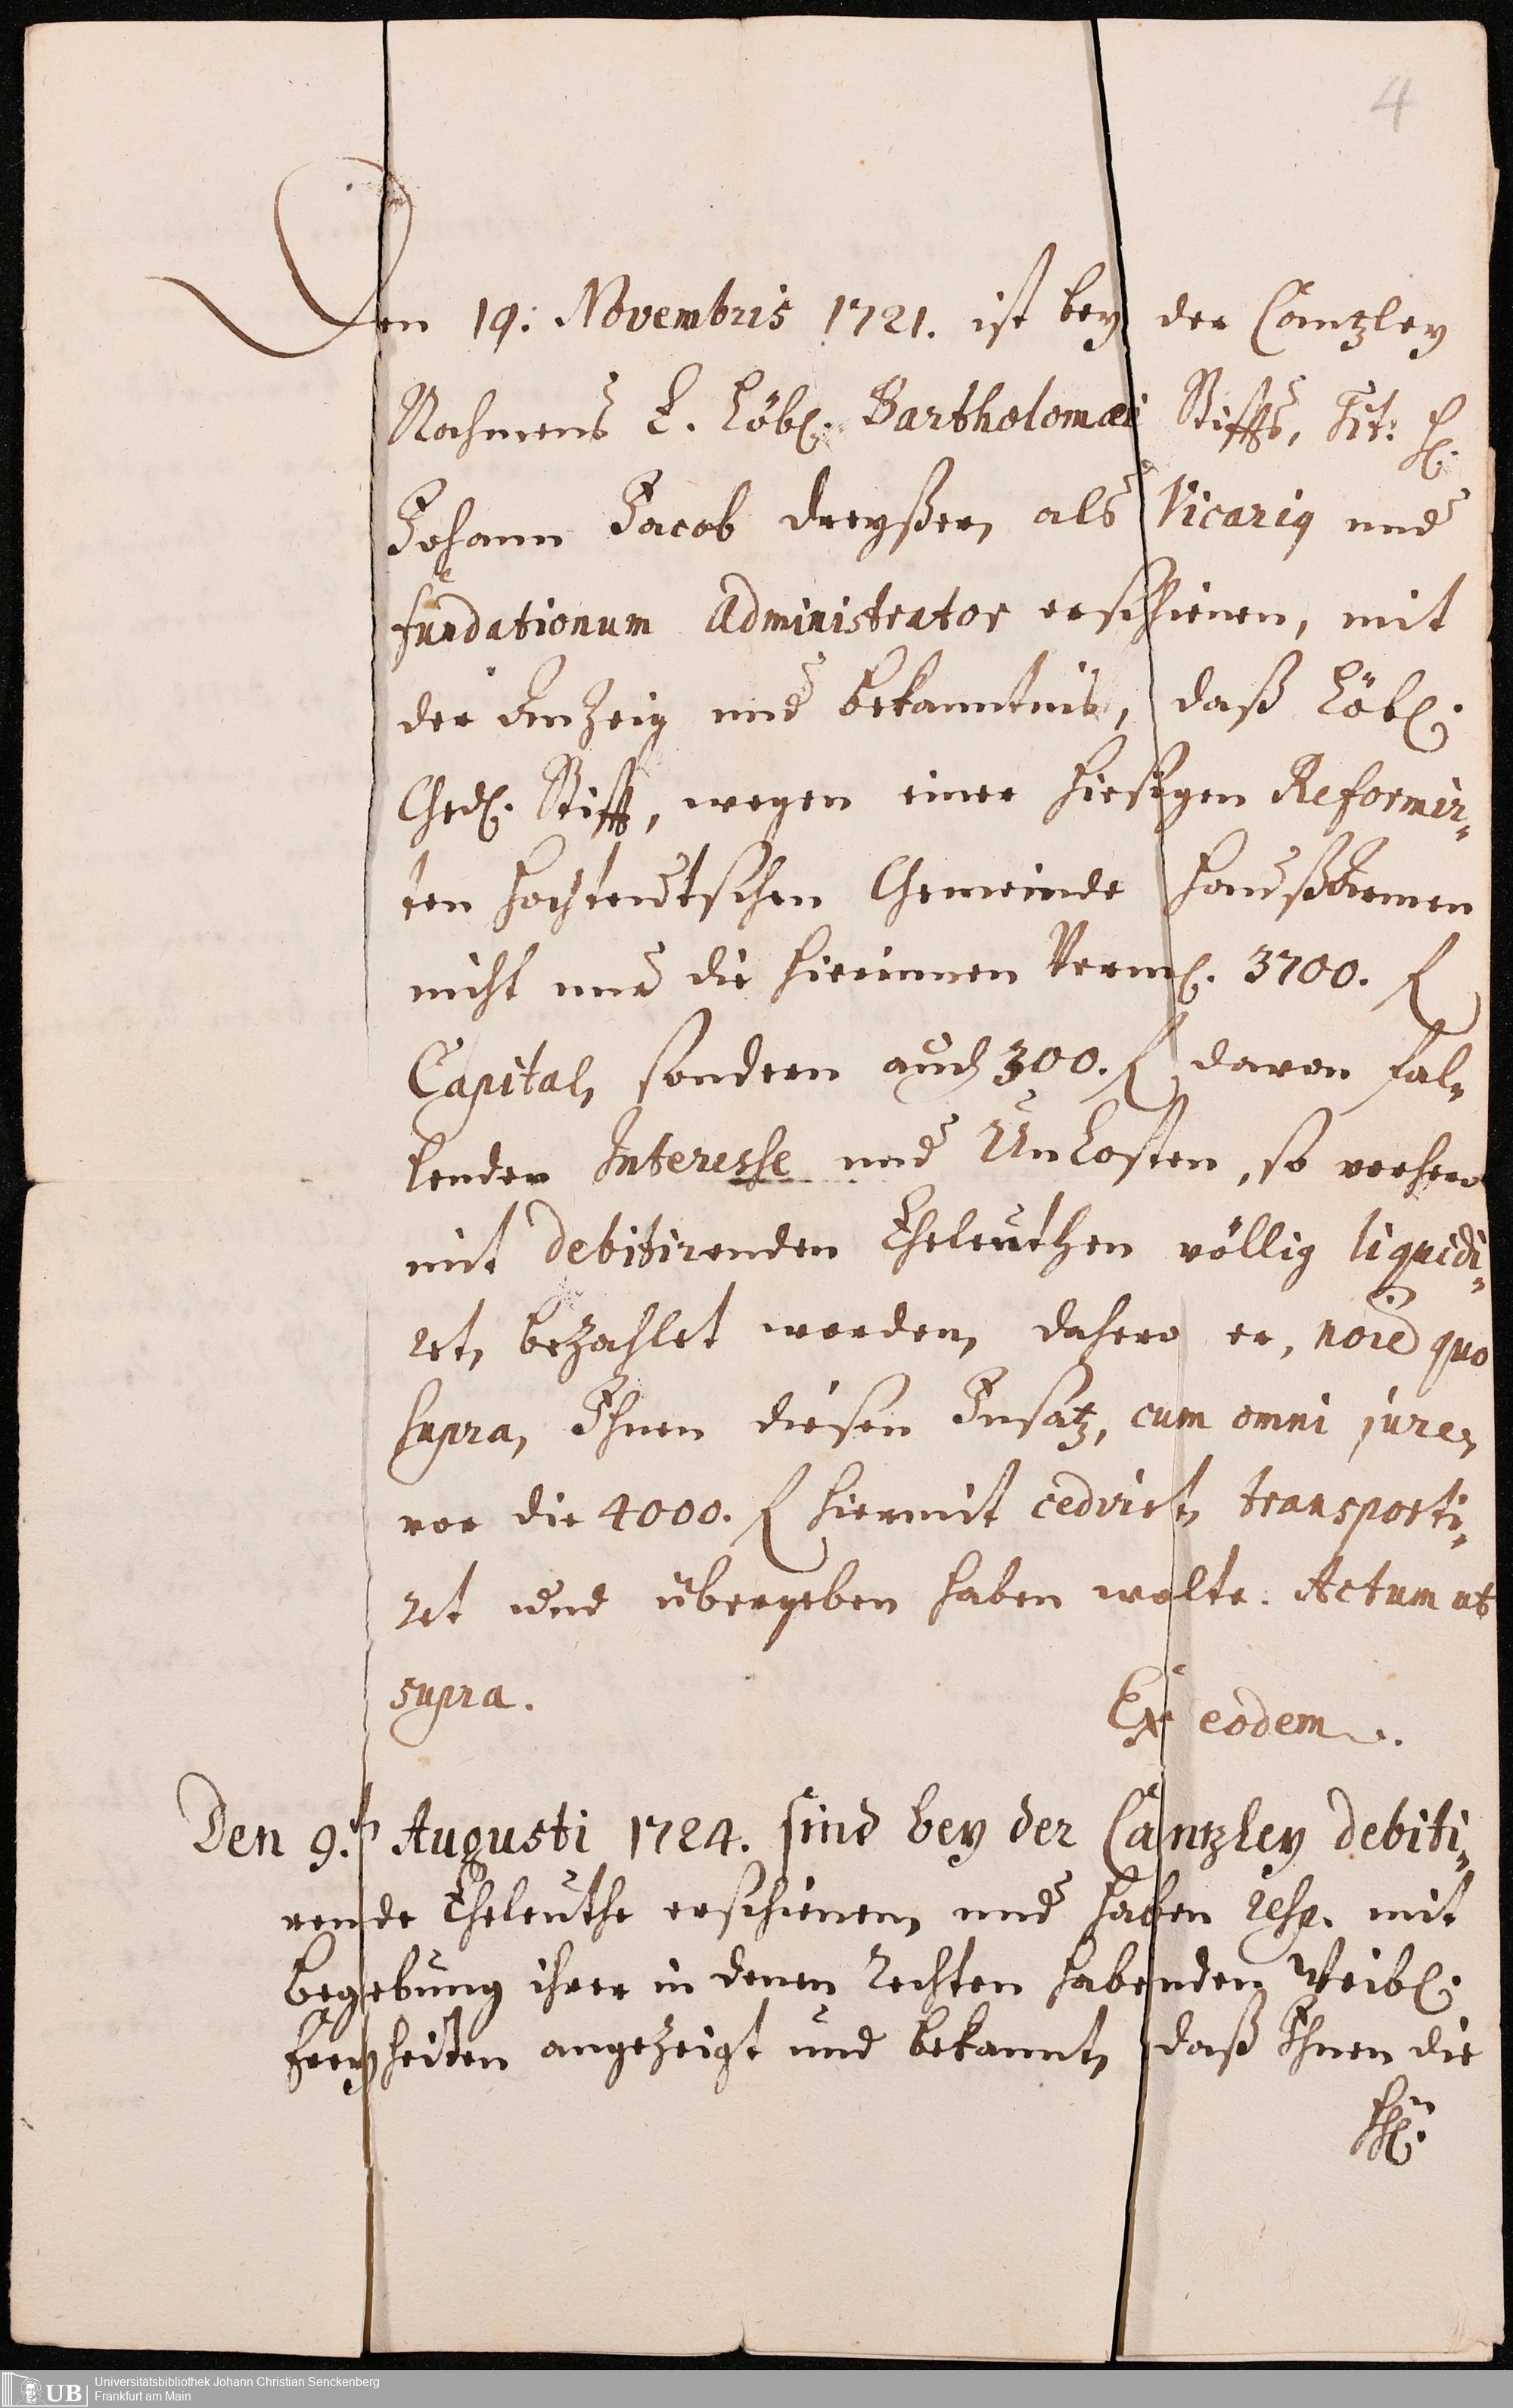 4
Den 19. Novembris 1721. ist bey der Cantzley
Nahmens E. Löbl. Bartholomæi Stiffts, Tit: H.
Johann Jacob Dreyßer, als Vicariq und
fundationum Administrator erschienen, mit
der Anzeig und bekanntnis, daß Löbl.
Ged. Stifft, wegen einer hiesigen Reformir„
ten Hochteutschen Gemeinde Haußarmen
nicht nur die hierinnen Verml. 3700. f
Capital, sondern auch 300. f davon fal„
lender Interesse und Unkosten, so vorhero
mit debitirenden Eheleuthen völlig liquidi„
ret, bezahlet worden, dahero er, noie quo
supra, Ihnen diesen Insatz, cum omni jure,
vor die 4000. f hiermit cedirt, transporti„
ret und übergeben haben wolte. Actum ut
supra.
Ex eodem.
Den 9.t Augusti 1724. sind bey der Cantzley debiti„
rende Eheleuthe erschienen, und haben resp. mit
begebung ihrer in denen Rechten habenden Weibl.
freyheiten angezeigt und bekannt, daß Ihnen die
Universitätsbibliothek Johann Christian Senckenberg
Frankfurt am Main
UB